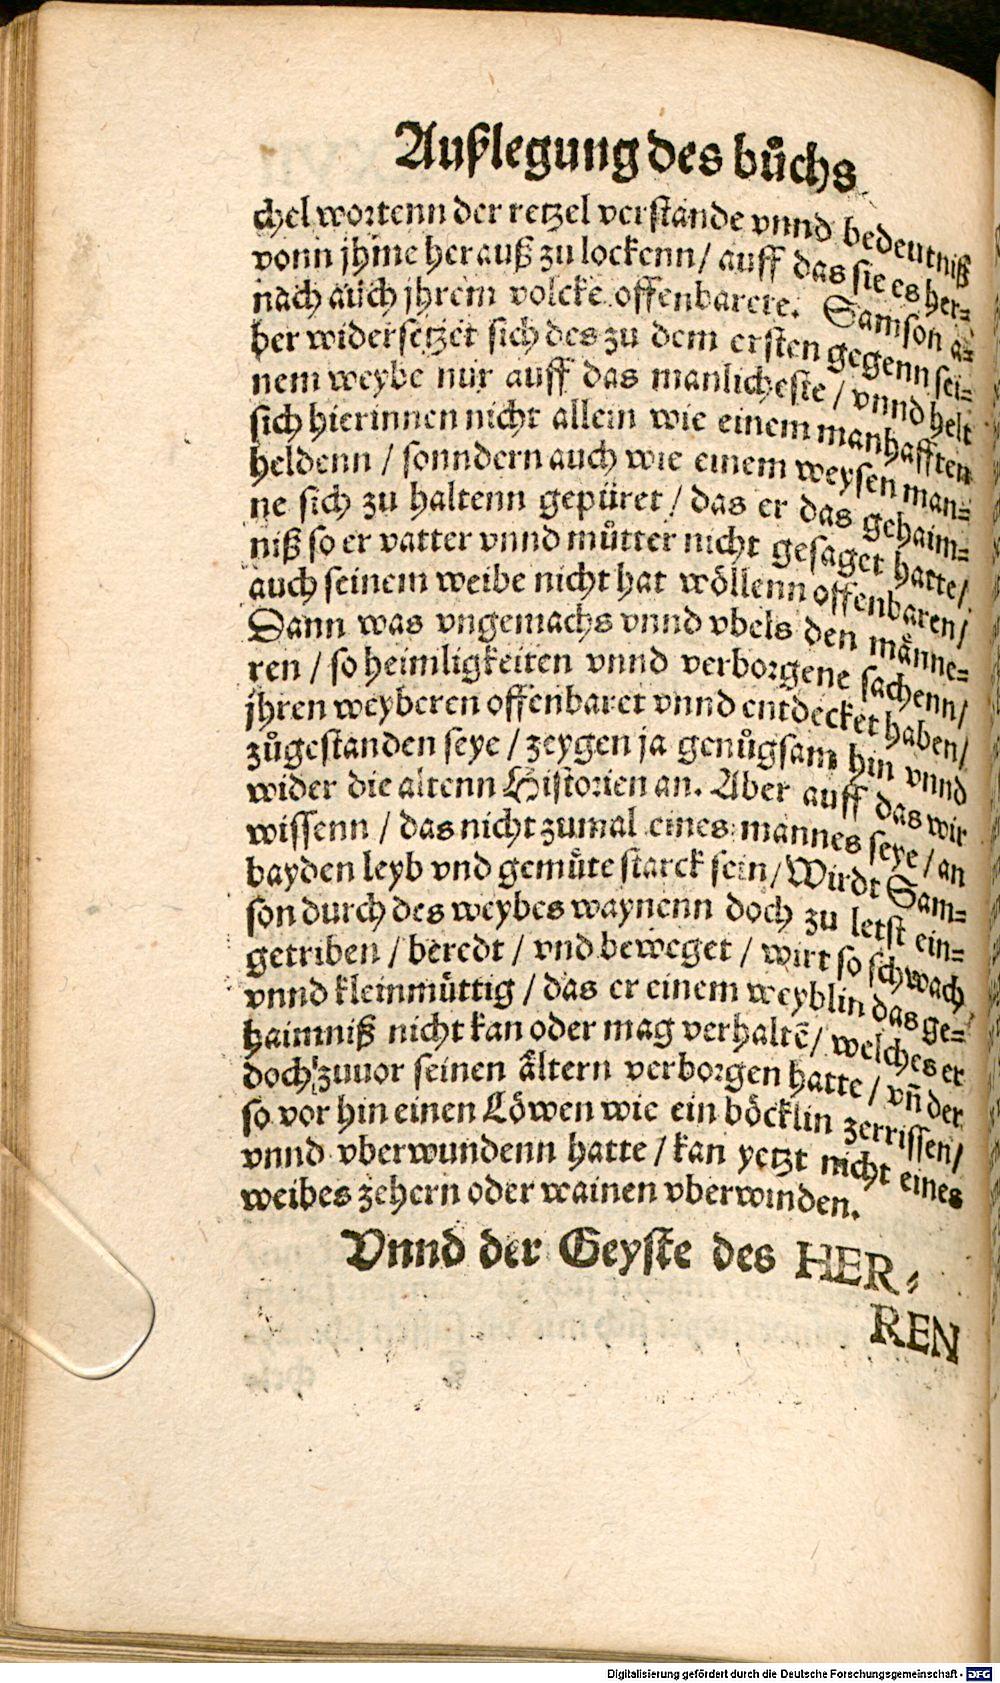 Außlegung des bůchs
chel wortenn der retzel verstande vnnd bedeutniß
vonn jhme herauß zu lockenn / auff das sie es her-
nach auch jhrem volcke offenbarete. Samson a-
ber widersetzet sich des zu dem ersten gegenn sei-
nem weybe nur auff das manlicheste / vnnd helt
sich hierinnen nicht allein wie einem manhafften
heldenn / sonndern auch wie einem weysen man-
ne sich zu haltenn gepüret / das er das gehaim-
niß so er vatter vnnd můtter nicht gesaget hatte /
auch seinem weibe nicht hat wöllenn offenbaren /
Dann was vngemachs vnnd vbels den männe-
ren / so heimligkeiten vnnd verborgene sachenn /
jhren weyberen offenbaret vnnd entdecket haben /
zůgestanden seye / zeygen ja genůgsam hin vnnd
wider die altenn Historien an. Aber auff das wir
wissenn / das nicht zumal eines mannes seye / an
bayden leyb vnd gemüte starck sein / Wirdt Sam-
son durch des weybes waynenn doch zu letst ein-
getriben / beredt / vnd beweget / wirt so schwach
vnnd kleinmüttig / das er einem weyblin das ge-
haimniß nicht kan oder mag verhaltẽ / welches er
doch zuuor seinen ältern verborgen hatte / vñ der
so vor hin einen Löwen wie ein böcklin zerrissen /
vnnd vberwundenn hatte / kan yetzt nicht eines
weibes zehern oder wainen vberwinden.
Vnnd der Geyste des HER-
REN
Digitalisierung gefördert durch die Deutsche Forschungsgemeinschaft - DFG